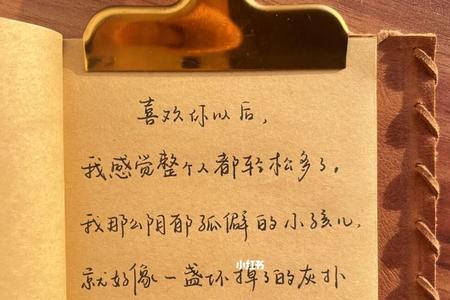 喜欢你以后，
我感觉整个人都轻松多了。
我那么阴郁孤僻的小孩儿，
小红书
就好像一盏坏掉了的灰扑